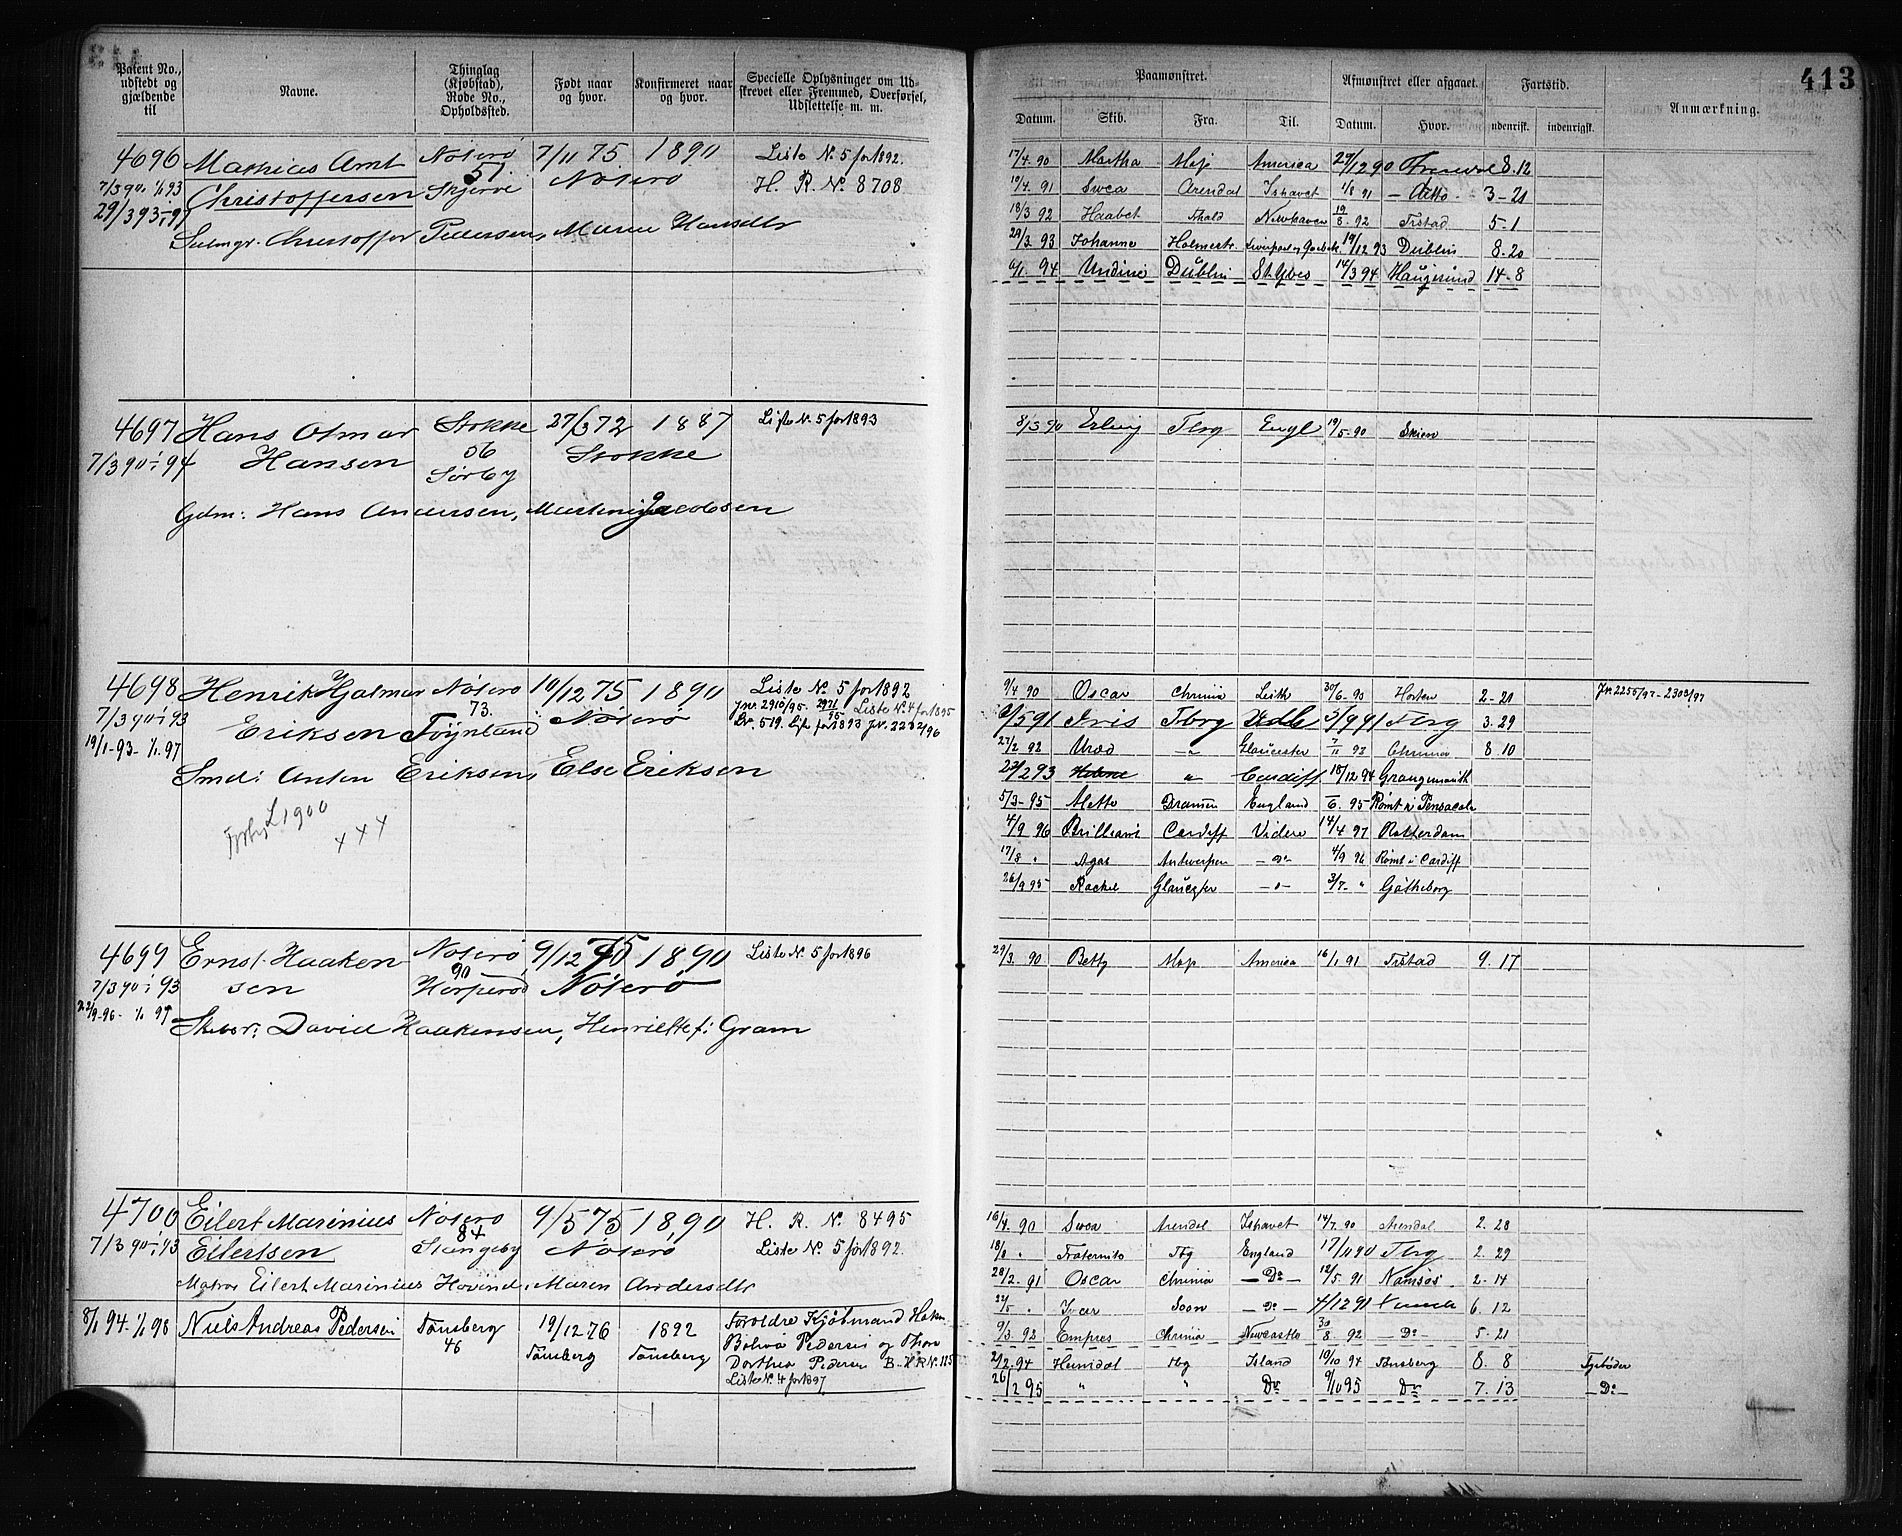 413
Patent No., udstedt og gjældende til
Navne.
Thinglag (Kjøbstad), Rode No., Opholdssted.
Født naar og hvor.
Konfirmeret naar og hvor.
Specielle Oplysninger om Udskrevet eller Fremmed, Overførsel, Udslettelse m. m.
Paamønstret.
Afmønstret eller afgaaet.
Fartstid.
Anmærkning.
Datum. Skib. Fra. Til. Datum. Hvor. Indenrigst.
4696 Mathias Amt Nøterø 7/11 75 1890 Liste No. 5 for 1892.
7/3 90 1/1 93 Christoffersen 51 Skjerve Nøterø H. R. No. 8708
29/3 93 - 1/1 97
Christoffer Pedersen, Maren Hansdtr
17/4 90 Martha Mxp America 27/12 90 8.12
10/4 91 Svea Arendal Ishavet 1/8 91 - Ditto - 3-21
18/3 92 Haabet Fhald Newhaven 19/8 92 Frstad 5-1
29/3 93 Johanne Holmestr. 19/12 93 Dublin 8.20
94 Undine Dublin St. Yves 14/3 94 Haugesund 14-8
4697 Hans Otmar Stokke 27/3 72 1887 Liste No. 5 for 1893
7/3 90 1/1 94 Hansen 56 Sørby Stokke
Gdm: Hans Andersen, Jacobsen
8/3 90 Erling Tbrg Engl 19/5 90 Skien
4698 Henrik Hjalmar Nøterø 10/12 75 1890 Liste No. 5 for 1892
7/3 90 1/1 93 Eriksen 73. Toynland Nøterø Jnr 2910/95. Liste No. 4 for 1895
19/1-93-1/1 97 519. for 1893
Smd: Anton Eriksen, Else Eriksen
L 1900
x x x
9/4 90 Oscar Chrnia Leith 30/6 90 Horten 2-21
6/5 91 Iris Tbrg 5/9 91 Tbrg 3.29
27/2 92 Urad - " - Glaucester 7/11 93 Chrnia 8 10
23/2 93 Helene " Cardiff 18/12 94 Grangemouth
5/3-95 Mette Dramen England 95 Rømt i Pensacola
4/9 96 Brilliant Cardiff Videre 14/4 97 Rotterdam
17/8 " Agat Antwerpen - Do 4/9 96 Rømt i Cardiff
26/9 95 Rachel - " - 3/7 - " Gøtheborg
4699 Ernst Haaken Nøterø 9/12 75 1890 Liste No. 5 for 1896
7/3 90 1/1 93 sen 90 Nøterø
David Haakensen, Henriette f: Gram
29/3. 90 Betty Mxp America 16/1 91 Frstad 9.17
4700 Eilert Marinius Nøterø 9/5 75 1890 H. R. No. 8495
7/3 90 1/1 93 Eilertsen 84 Stangeby Nøterø Liste No. 5 for 1892.
Matros Eilert Marinius Hovind, Maren Andersdtr
8/1 94 1/1 98 Niels Andreas Pedersen Tønsberg 46 19/12 76 Tønsberg 1892 Tønsberg Forældre Kjøbmand
Pedersen og
Dorthea Pedersen
Liste No. 4 for 1897
16/4. 90 Svea Arendal Ishavet 14/7. 90 Arendal 2.28
18/8 " Fraternitas Tbg England 17/11 90 Tbrg 2.29
28/2. 91 Oscar Chrnia - Do - 12/5. 91 Namsos 2-14
22/5 " Ivar Soon - Do - 4/12 91 6.12
9/3. 92 Empres Chrnia Newcastle 30/8. 92 - Do - 5.21
2/2. 94 Heimdal Tbg Island 10/10 94 Tønsberg 8.8
26/2 95 " " Do 9/10 95 Do 7.13 - Do -